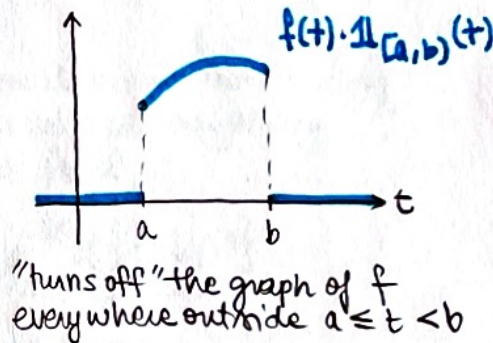 f(t)·𝟙[a,b)(t)
t
a b
"turns off" the graph of f
everywhere outside a ≤ t < b